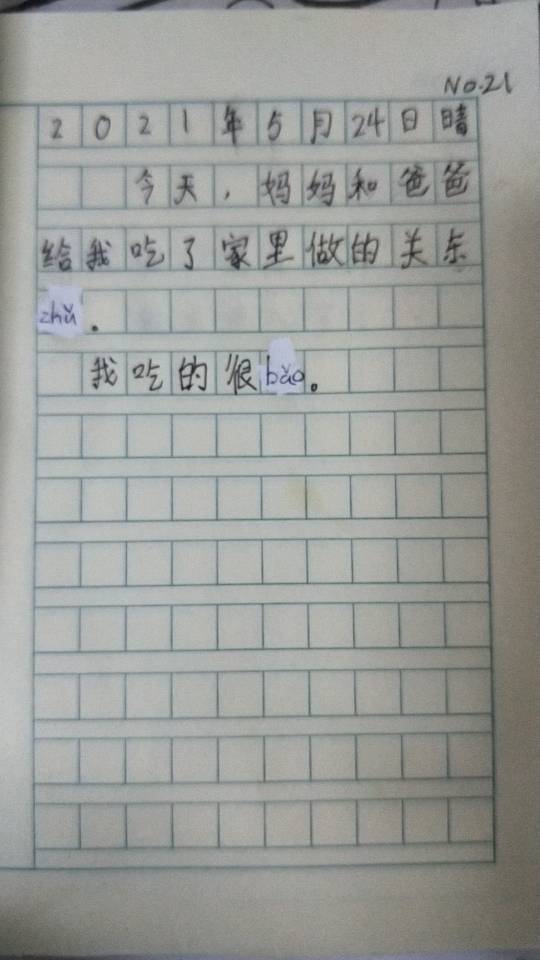 No.21
2021年5月24日晴
今天，妈妈和爸爸
给我吃了家里做的关东
zhǔ。
我吃的很bǎo。